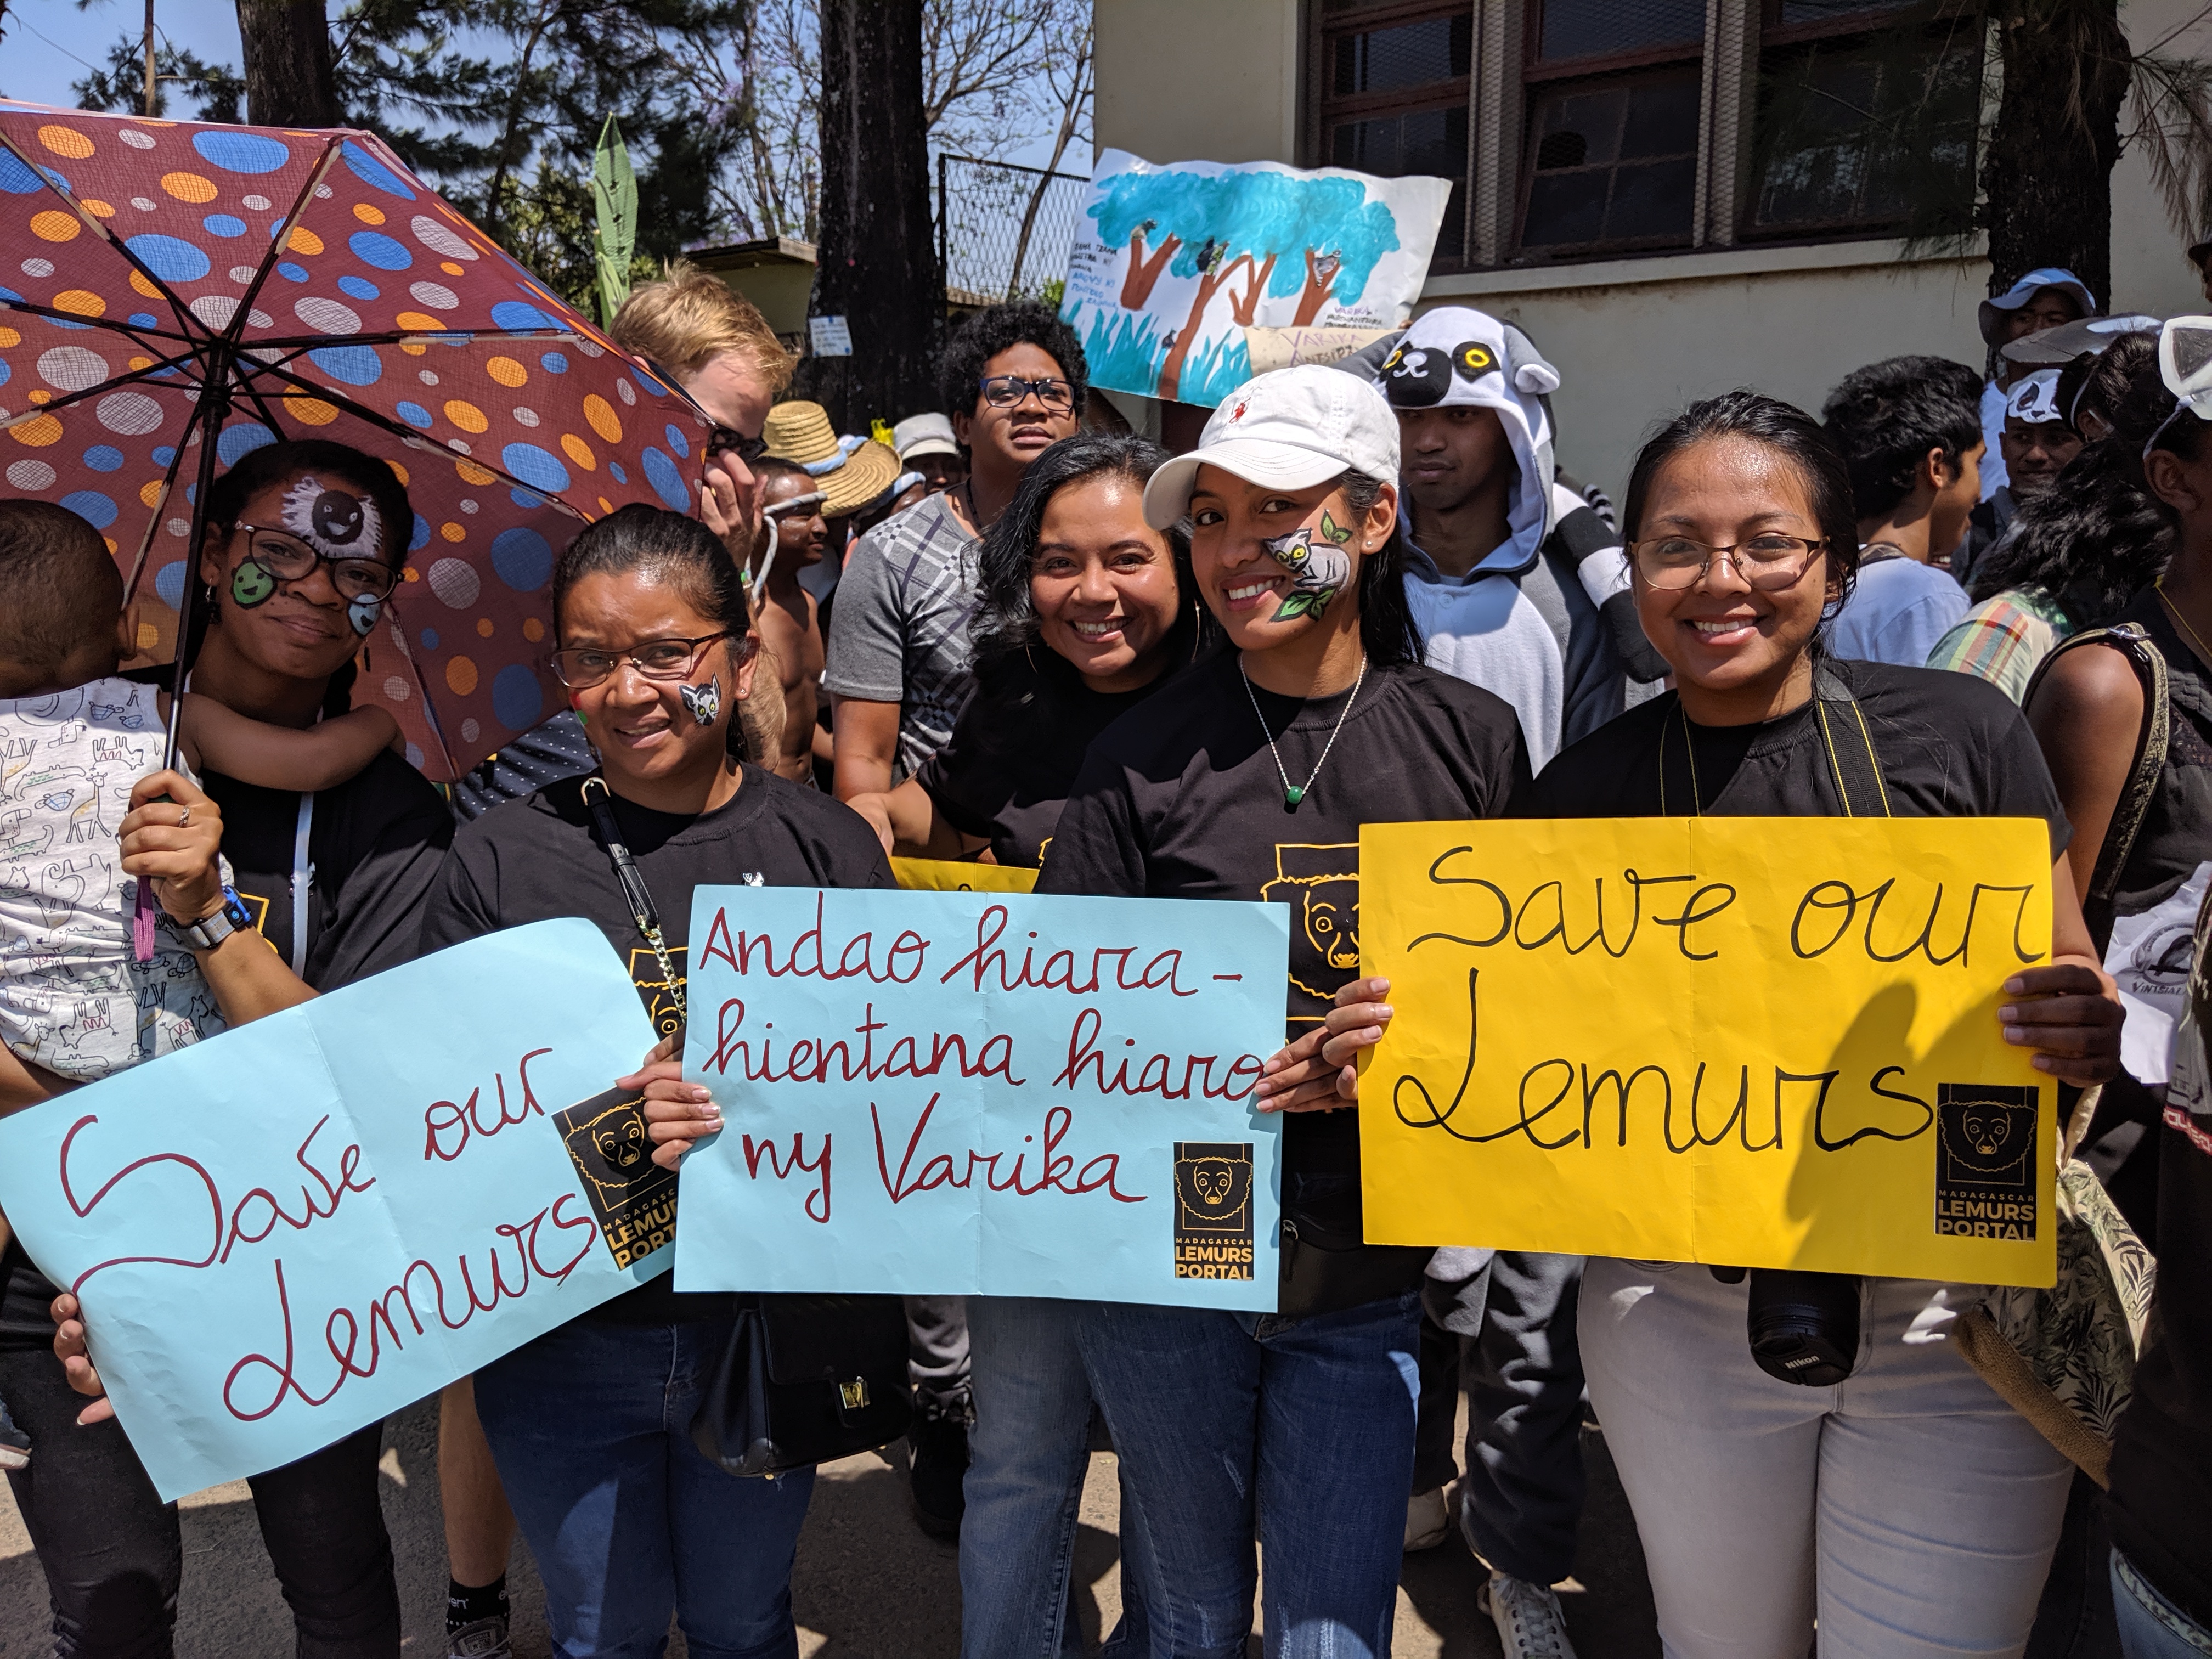 Save our
Lemurs
MADAGASCAR
LEMURS
PORTAL
Andao hiara-
hientana hiaro
ny Varika
MADAGASCAR
LEMURS
PORTAL
Save our
Lemurs
MADAGASCAR
LEMURS
PORTAL
VARIKA
Nikon